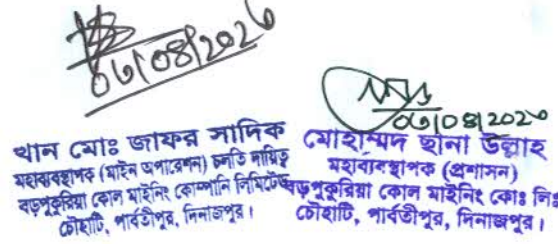 ০৩/০৪/২০২৩
খান মোঃ জাফর সাদিক
মহাব্যবস্থাপক (মাইন অপারেশন) চলতি দায়িত্ব
বড়পুকুরিয়া কোল মাইনিং কোম্পানি লিমিটেড
চৌহাটি, পার্বতীপুর, দিনাজপুর।
মোহাম্মদ ছানা উল্লাহ
মহাব্যবস্থাপক (প্রশাসন)
বড়পুকুরিয়া কোল মাইনিং কোঃ লিঃ
চৌহাটি, পার্বতীপুর, দিনাজপুর।